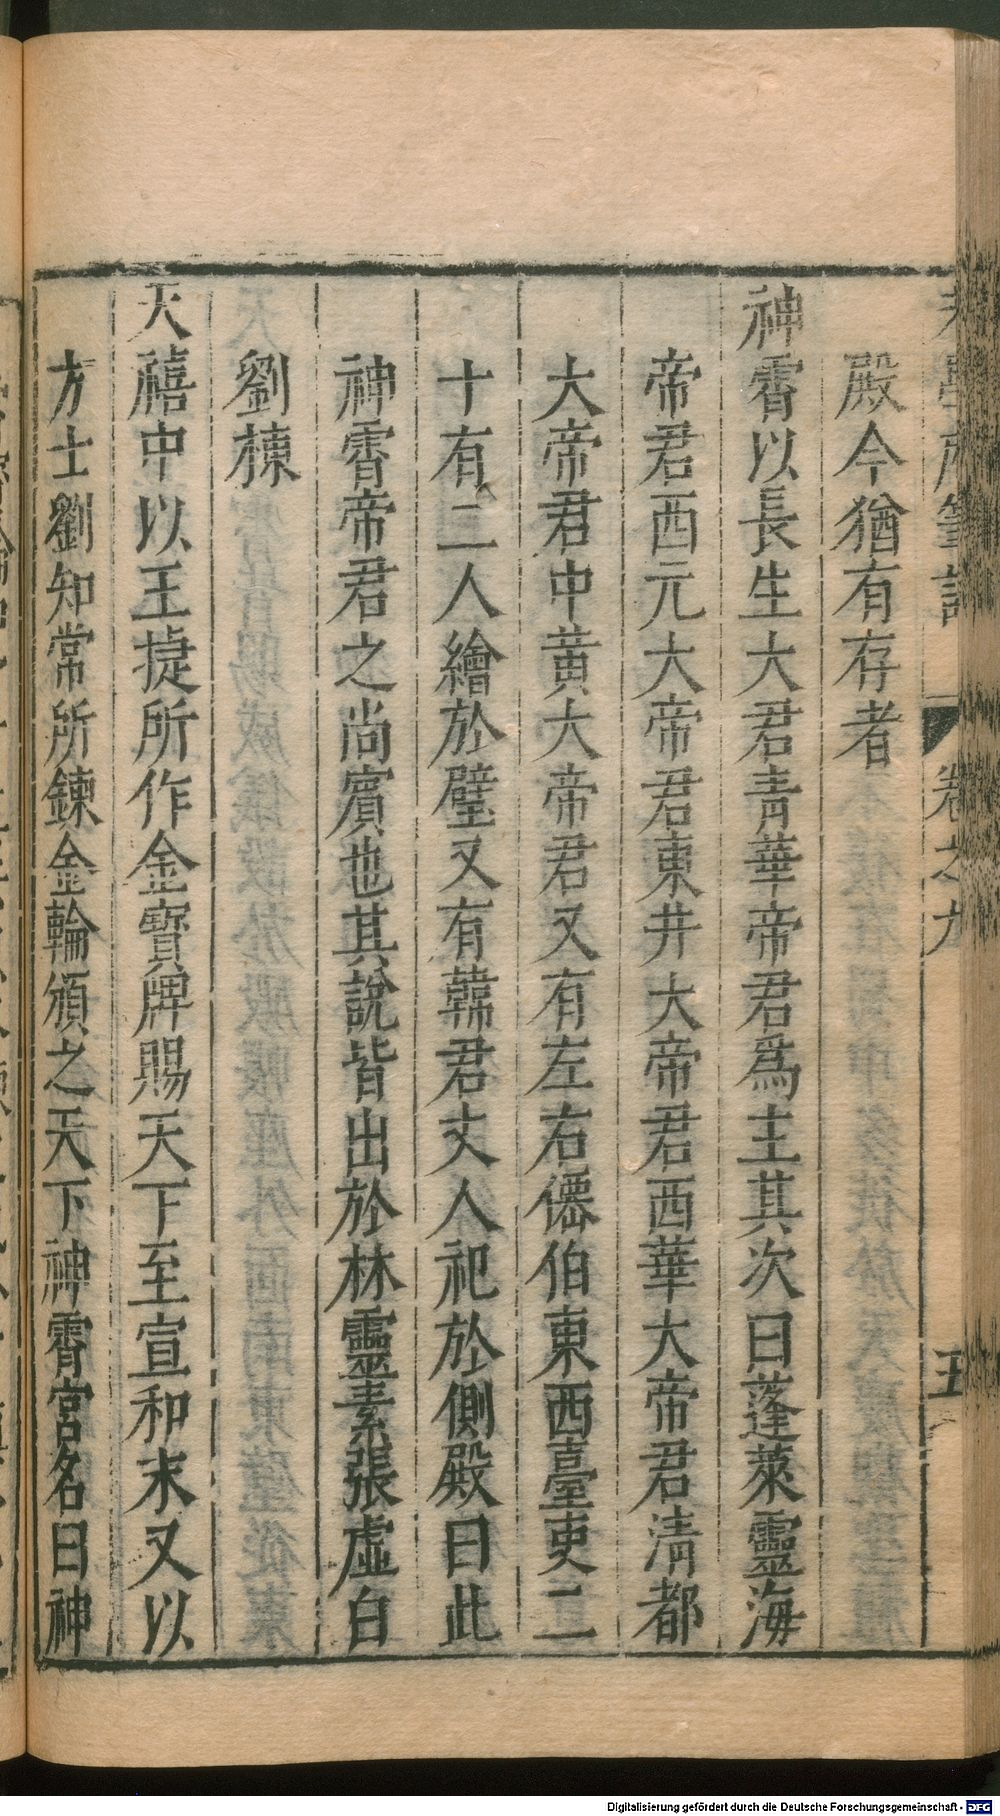 老學庵筆記 卷之九 五
殿今猶有存者
神霄以長生大君青華帝君爲主其次曰蓬萊靈海
帝君西元大帝君東井大帝君西華大帝君清都
大帝君中黃大帝君又有左右僊伯東西臺吏二
十有二人繪於壁又有韓君丈人祀於側殿曰此
神霄帝君之尚賓也其說皆出於林靈素張虛白
劉棟
天禧中以王捷所作金寶牌賜天下至宣和末又以
方士劉知常所鍊金輪頒之天下神霄宮名曰神
Digitalisierung gefördert durch die Deutsche Forschungsgemeinschaft - DFG